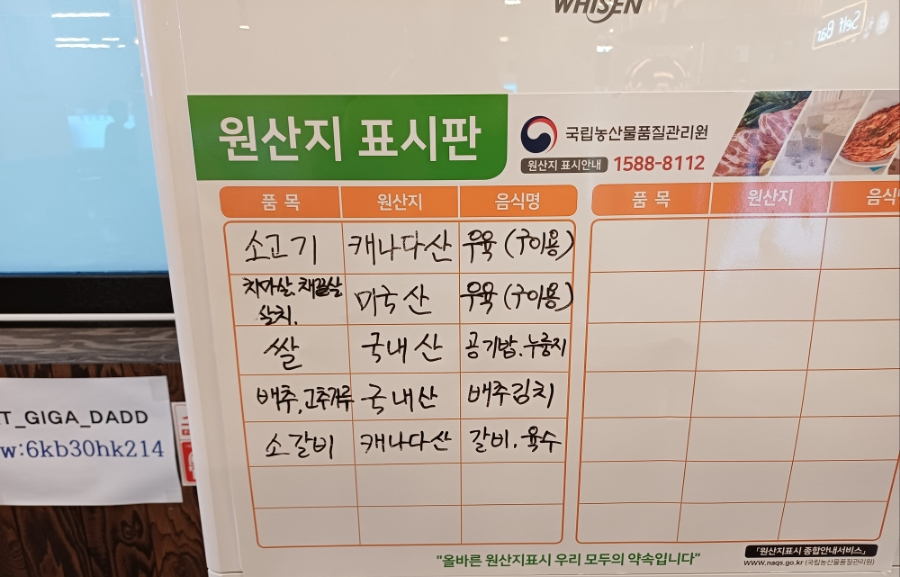 WHISEN
Self Bar
원산지 표시판
국립농산물품질관리원
원산지 표시안내 1588-8112
품 목 원산지 음식명
품 목 원산지 음식
소고기 캐나다산 우육 (구이용)
치마살, 채끝살 살치. 미국산 우육 (구이용)
쌀 국내산 공기밥. 누룽지
배추, 고추가루 국내산 배추김치
소갈비 캐나다산 갈비. 육수
T_GIGA_DADD
w:6kb30hk214
"올바른 원산지표시 우리 모두의 약속입니다"
「원산지표시 종합안내서비스」
www.naqs.go.kr (국립농산물품질관리원)